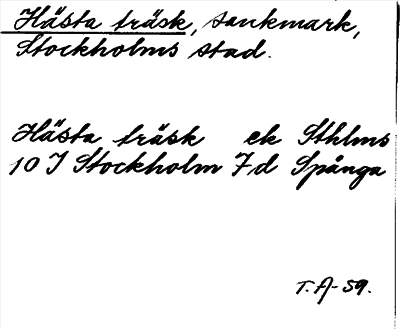 Hästa träsk, sankmark,
Stockholms stad.
Hästa träsk ek Sthlms
10 I Stockholm 7d Spånga
T. A-59.